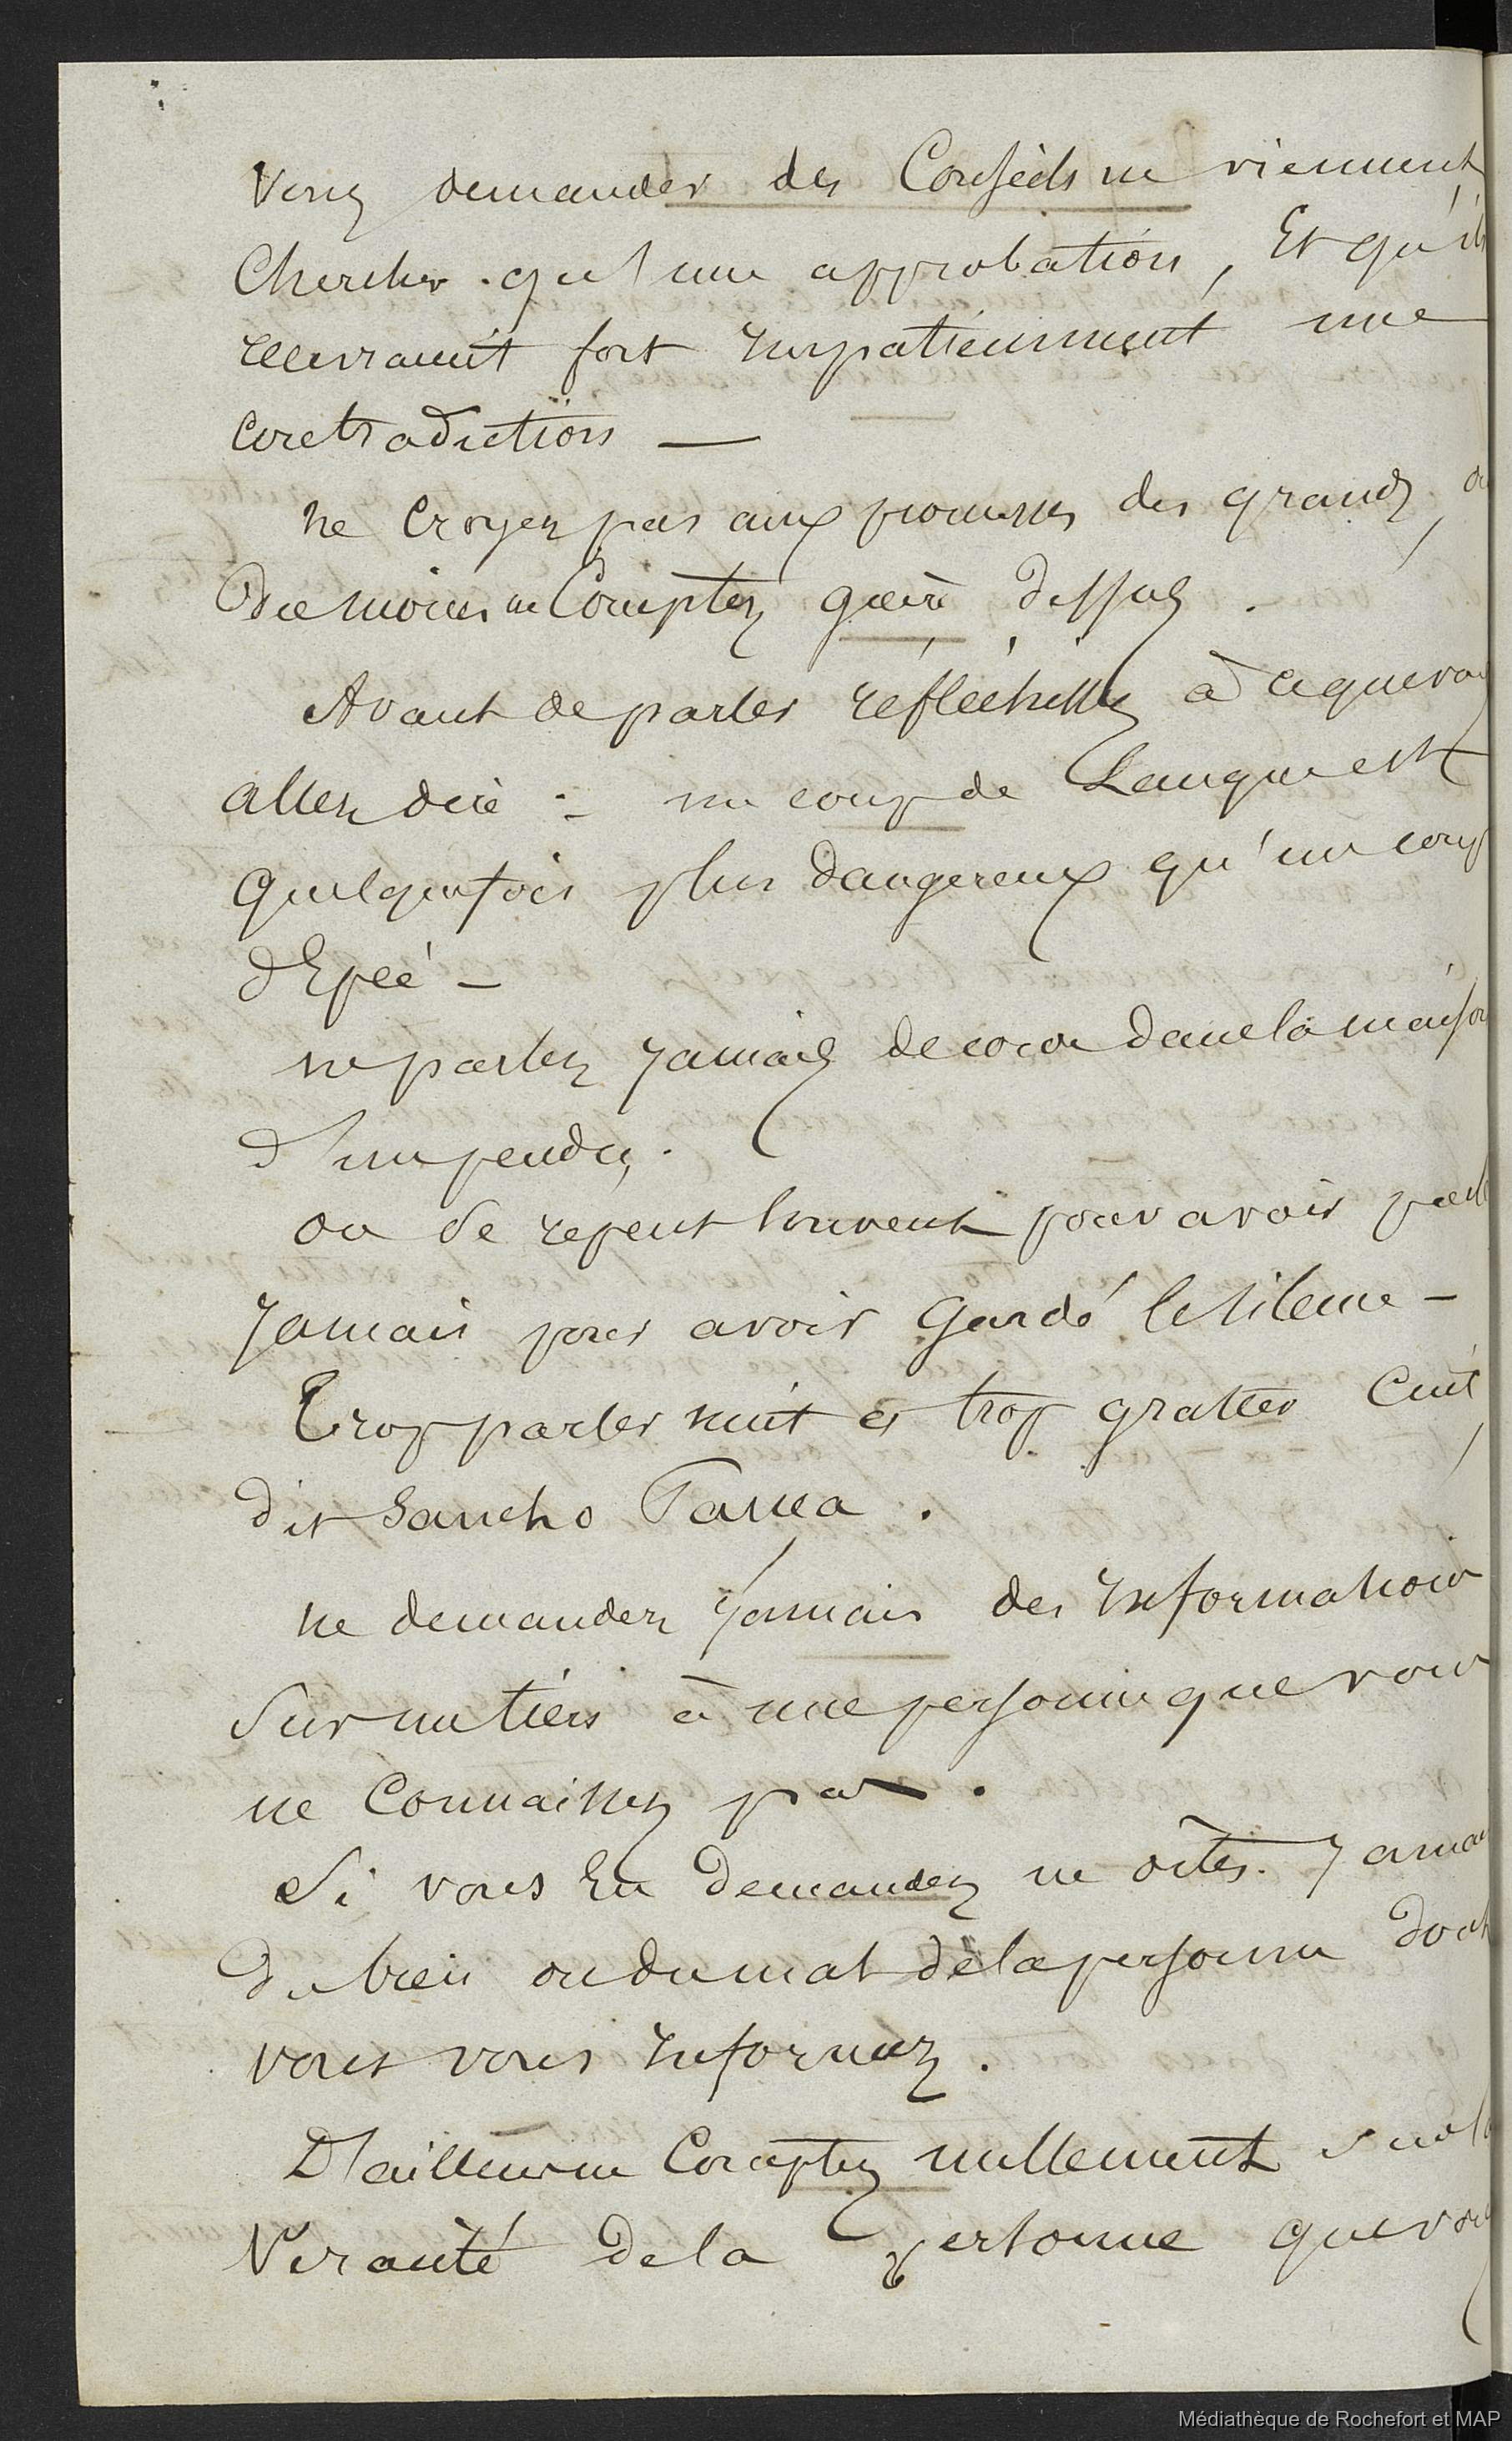 Vous demander des Conseils ne viennent
Chercher qu'une approbation, Et qu'ils
recevraient fort impatiemment une
contradiction —
ne Croyez pas aux promesses des grands, ou
Du moins ne Comptez guère dessus.
Avant de parler réfléchissez à ce que vous
allez dire : un coup de Langue est
quelquefois plus dangereux qu'un coup
d'Epée —
ne parlez jamais de corde dans la maison
d'un pendu.
on se repent souvent pour avoir parlé
Jamais pour avoir gardé le silence —
Trop parler nuit et trop gratter Cuit,
dit Sancho Panca.
ne demandez jamais des informations
Sur un tiers à une personne que vous
ne Connaissez pas.
Si vous En demandez ne dites jamais
Du bien ou du mal de la personne dont
vous vous informez.
D'ailleurs ne Comptez nullement sur la
Véracité de la personne que vous
Médiathèque de Rochefort et MAP